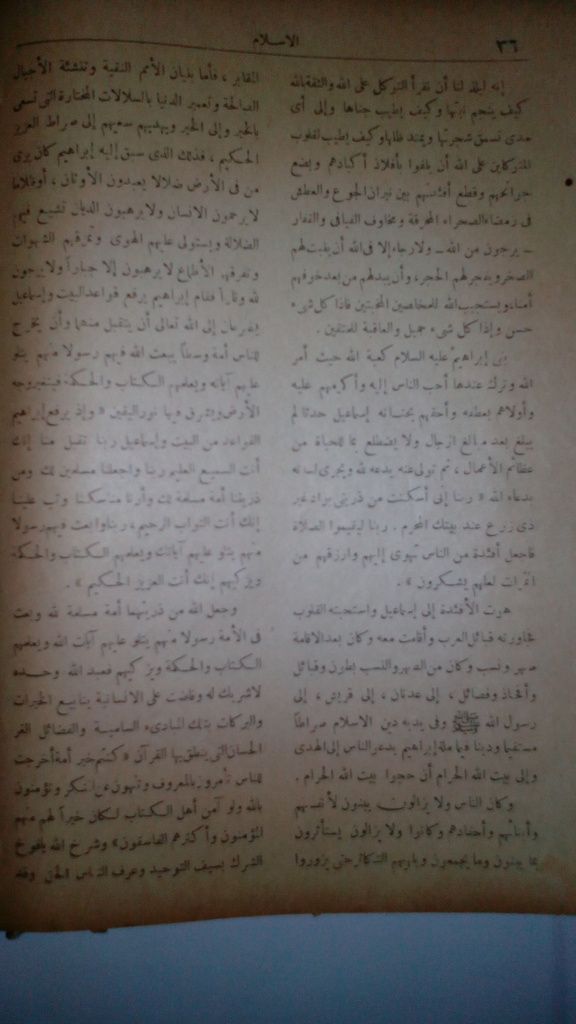 ٣٦
الاسلام
إنه ليلذ لنا أن نقرأ التوكل على الله والثقة بالله
كيف ينجم نبتها وكيف يطيب جناها وإلى أى
مدى تسمق شجرتها ويمتد ظلها وكيف يطيب لقلوب
المتوكلين على الله أن يلقوا بأفلاذ أكبادهم وبضع
جوانحهم وقطع أفئدتهم بين نيران الجوع والعطش
فى رمضاء الصحراء المحرقة ومخاوف الفيافى والقفار
ـ يرجون من الله ـ ولا رجاء إلا فى الله أن يلين لهم
الصخر ويفجر لهم الحجر، وأن يبدلهم من بعد خوفهم
أمنا، ويستجيب الله للمخلصين المخبتين فاذا كل شىء
حسن وإذا كل شىء جميل والعاقبة للمتقين .
بنى إبراهيم عليه السلام كعبة الله حيث أمر
الله وترك عندها أحب الناس إليه وأكرمهم عليه
وأولاهم بعطفه وأحقهم بحنانه إسماعيل حدثا لم
يبلغ بعد مبلغ الرجال ولا يضطلع بما للحياة من
عظائم الأعمال ، ثم تولى عنه يدعو له ويجرى لسانه
بدعاء الله « ربنا إنى أسكنت من ذريتى بواد غير
ذى زرع عند بيتك المحرم . ربنا ليقيموا الصلاة
فاجعل أفئدة من الناس تهوى إليهم وارزقهم من
الثمرات لعلهم يشكرون » .
هوت الأفئدة إلى إسماعيل واستجبته القلوب
فجاورته قبائل العرب وأقامت معه وكان بعد الاقامة
صهر ونسب وكان من الصهر والنسب بطون وقبائل
وأفخاذ وفصائل ، إلى عدنان ، إلى قريش ، إلى
رسول الله ﷺ وفى يديه دين الاسلام صراطاً
مستقيما ودينا قيما ملة إبراهيم يدعو الناس إلى الهدى
وإلى بيت الله الحرام أن حجوا بيت الله الحرام .
وكان الناس ولا يزالون يبنون لأنفسهم
وأبنائهم وأحفادهم وكانوا ولا يزالون يستأثرون
بما يبنون وما يجمعون ويلهيهم التكاثر حتى يزوروا
المقابر ، فأما بنيان الأمم النقية وتنشئة الأجيال
الصالحة وتعمير الدنيا بالسلالات المختارة التى تسعى
بالخير وإلى الخير ويهديهم سعيهم إلى صراط العزيز
الحكيم ، فذلك الذى سبق إليه إبراهيم كان يرى
من فى الأرض ضلالا يعبدون الأوثان ، أو ظلاما
لا يرحمون الانسان ولا يرهبون الديان تشيع فيهم
الضلالة ويستولى عليهم الهوى وتمزقهم الشهوات
وتفرقهم الأطماع لا يرهبون إلا جباراً ولا يرجون
لله وقاراً فقام إبراهيم يرفع قواعد البيت وإسماعيل
يضرعان إلى الله تعالى أن يتقبل منهما وأن يخرج
للناس أمة وسطاً يبعث الله فيهم رسولا منهم يتلو
عليهم آياته ويعلمهم الكتاب والحكمة فينير وجه
الأرض ويشرق فيها نور اليقين « وإذ يرفع إبراهيم
القواعد من البيت وإسماعيل ربنا تقبل منا إنك
أنت السميع العليم ربنا واجعلنا مسلمين لك ومن
ذريتنا أمة مسلمة لك وأرنا مناسكنا وتب علينا
إنك أنت التواب الرحيم ، ربنا وابعث فيهم رسولا
منهم يتلو عليهم آياتك ويعلمهم الكتاب والحكمة
ويزكيهم إنك أنت العزيز الحكيم » .
وجعل الله من ذريتهما أمة مسلمة لله وبعث
فى الأمة رسولا منهم يتلو عليهم آيات الله ويعلمهم
الكتاب والحكمة ويزكيهم فعبد الله وحده
لا شريك له وفاضت على الانسانية ينابيع الخيرات
والبركات بتلك المبادىء السامية والفضائل الغر
الحسان التى ينطق بها القرآن « كنتم خير أمة أخرجت
للناس تأمرون بالمعروف وتنهون عن المنكر وتؤمنون
بالله ولو آمن أهل الكتاب لكان خيراً لهم منهم
المؤمنون وأكثرهم الفاسقون » وشرخ الله يافوخ
الشرك بسيف التوحيد وعرف الناس الحق وفقه